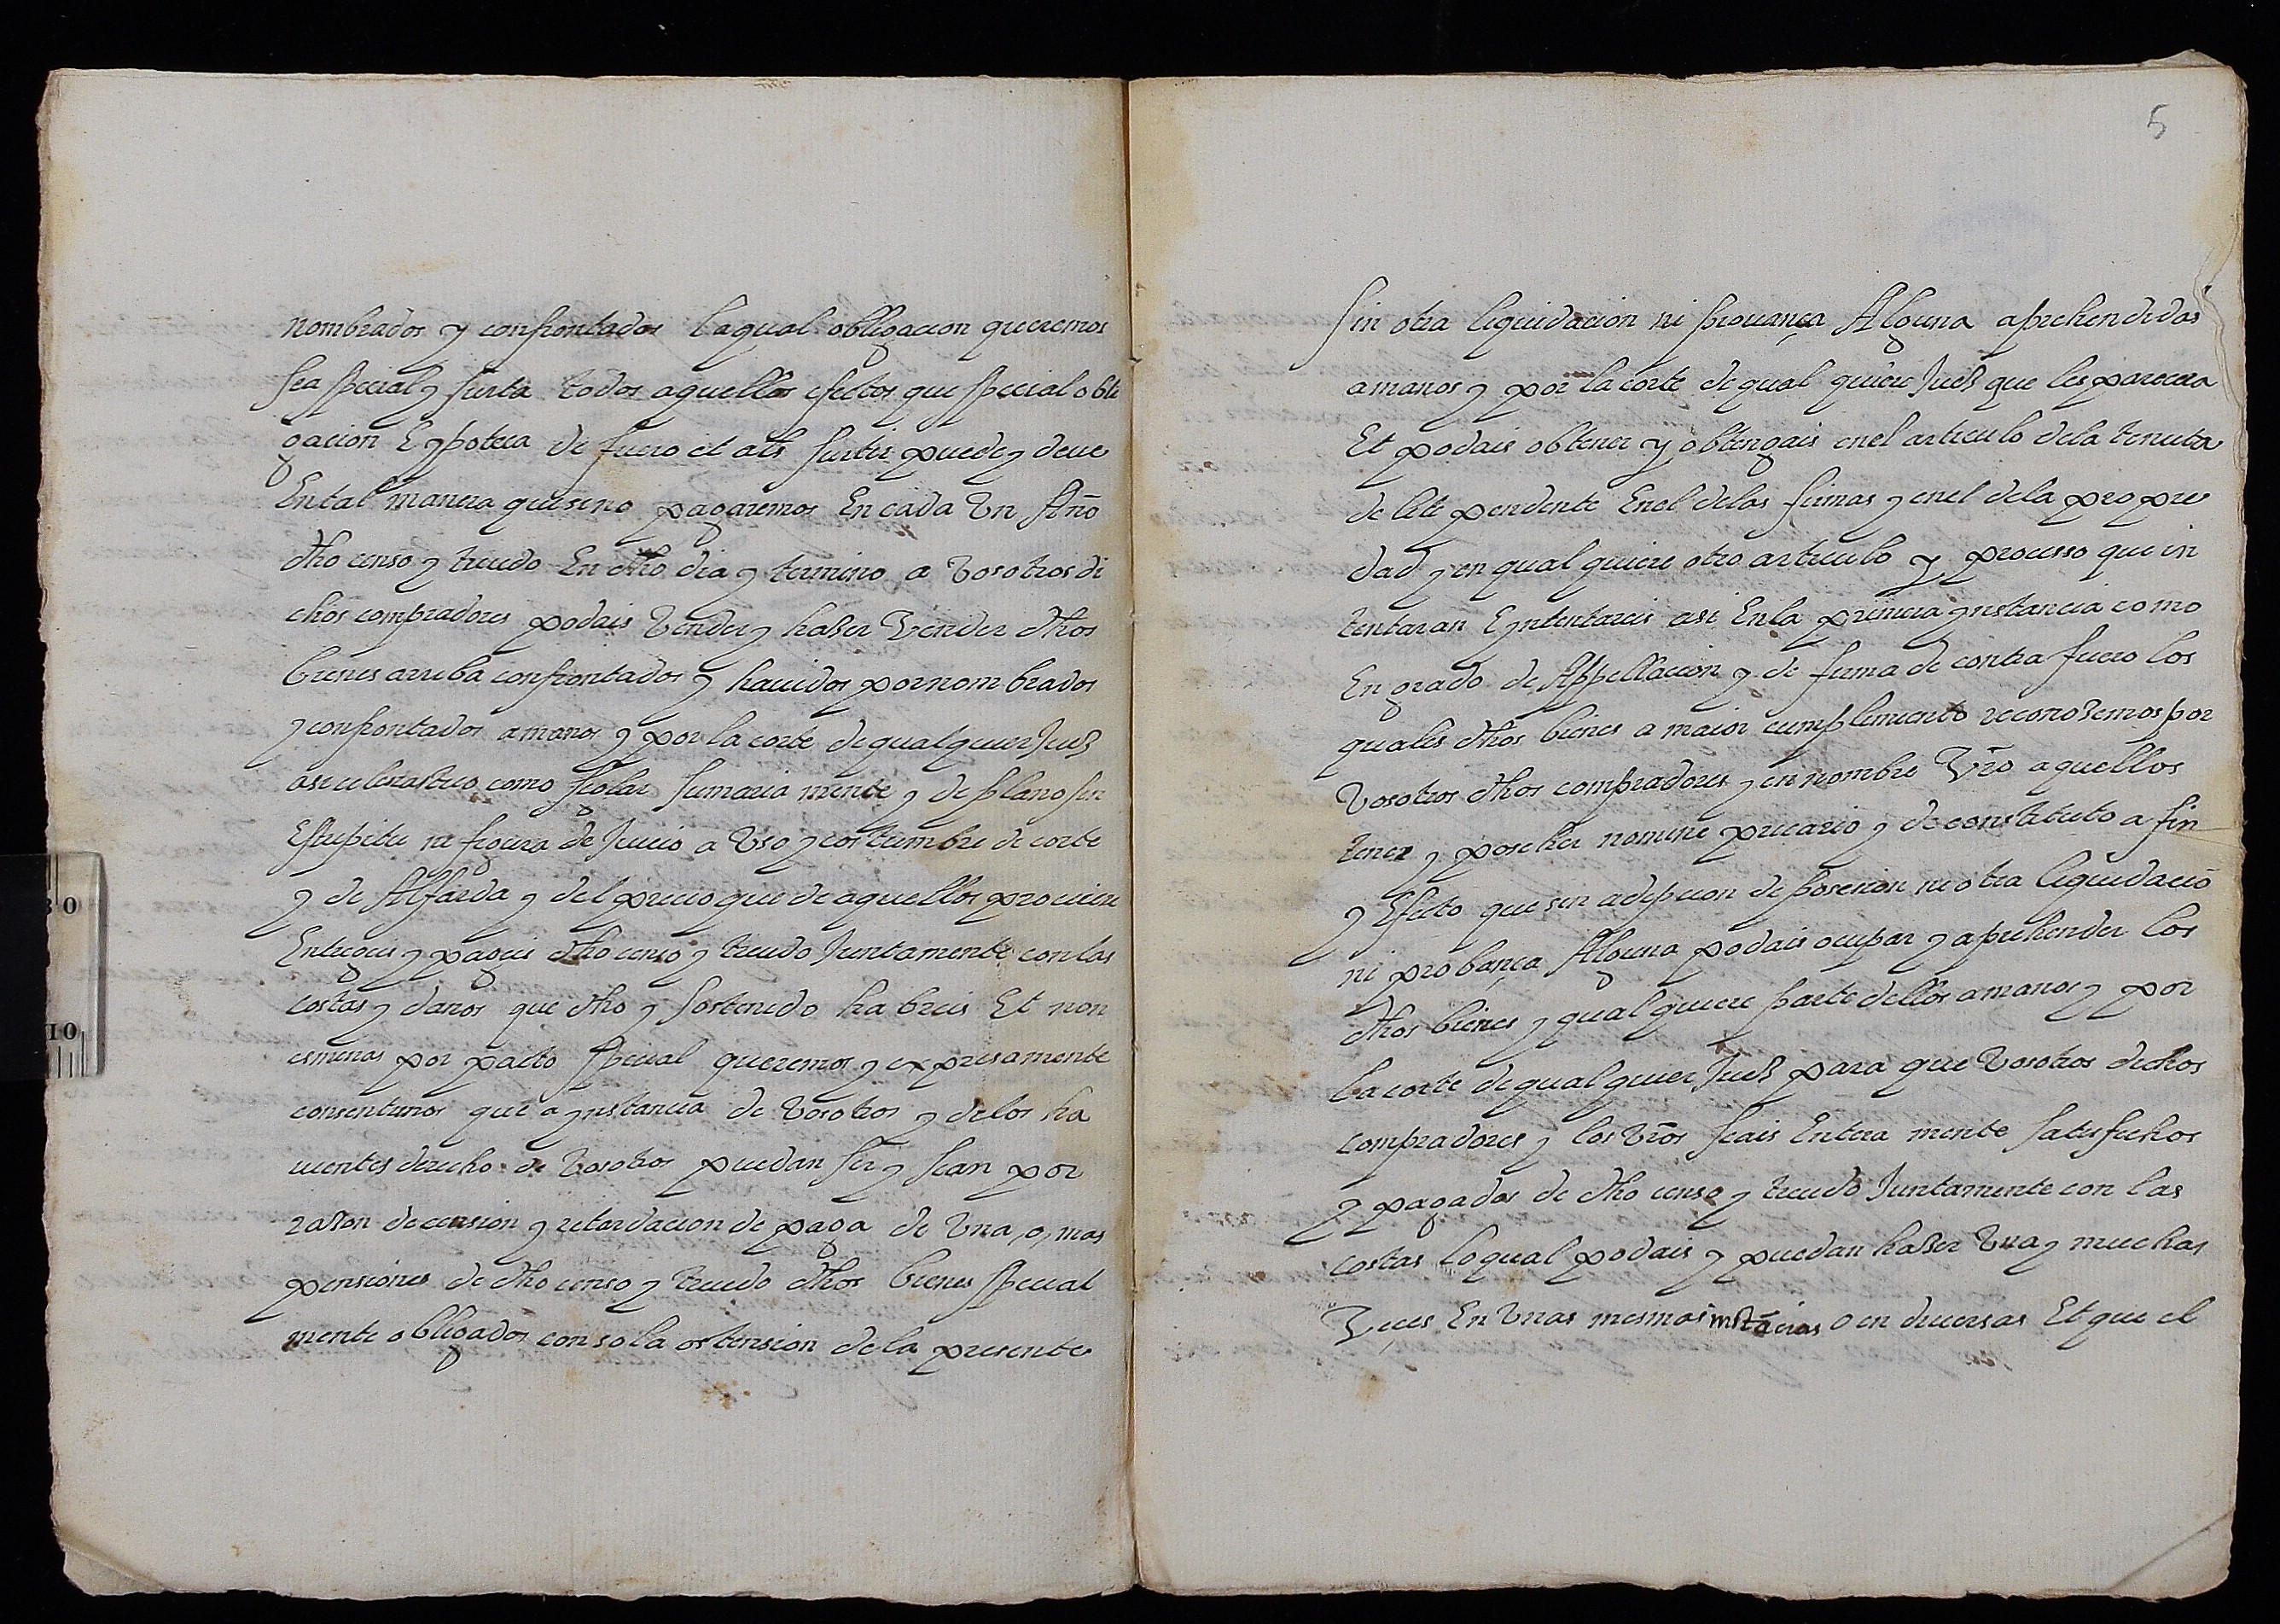 nombrados y confrontados laqual obligacion queremos
sea special y surta todos aquellos efectos que special obli
gacion E ypoteca de fuero et als surtir puede y deue
En tal manera que sino pagaremos En cada Vn Año
dho censo y treudo En dho dia y termino a Vosotros di
chos compradores podais Vender y hazer Vender dhos
bienes arriba confrontados y hauidos por nombrados
y confrontados a manos y por la corte de qualquier Juez
asi eclesiastico como seglar sumaria mente y de plano sin
Estrepitu ni figura de Juicio a Vso y costumbre de corte
y de Alfarda y del precio que de aquellos prouiene
Entregueis y pagueis dho censo y treudo Juntamente con las
costas y danos que dho y sostenido habreis Et non
esmenos por pacto special queremos y expresamente
consentimos que a ynstancia de Vosotros y de los ha
uientes derecho de Vosotros puedan ser y sean por
razon de cession y retardacion de paga de Vna, o, mas
pensiones de dho censo y treudo dhos bienes special
mente obligados con sola ostension de la presente
5
sin otra liquidacion ni prouança Alguna aprehendidos
a manos y por la corte de qual quiere Juez que les parecera
Et podais obtener y obtengais en el articulo de la tenuta
de lite pendente En el de las firmas y en el de la proprie
dad y en qual quiere otro articulo y processo que in
tentaran E yntentareis asi En la primera ynstancia como
En grado de Appellacion y de firma de contra fuero los
quales dhos bienes a maior cumplimiento reconozemos por
Vosotros dhos compradores y en nombre Vro aquellos
tener y poseher nomine precario y de constituto a fin
y Efecto que sin adepcion de posesion ni otra liquidaciō
ni probança Alguna podais ocupar y aprehender los
dhos bienes y qual quiere parte dellos a manos y por
la corte de qual quier Juez para que Vosotros dichos
compradores y los Vros seais Entera mente satisfechos
y pagados de dho censo y treudo Juntamente con las
costas lo qual podais y puedan hazer Vna y muchas
Veçes En Vnas mesmas instācias o en diuersas Et que el